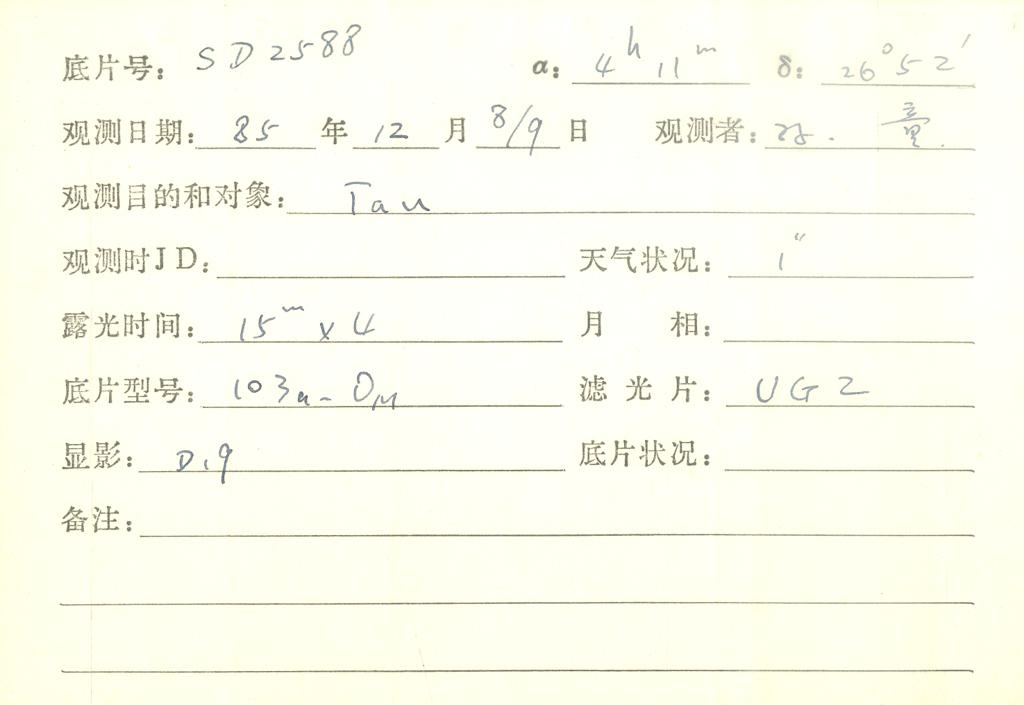 底片号: SD2588 α: 4h 11m δ: 26°52′
观测日期: 85 年 12 月 8/9 日 观测者: 童
观测目的和对象: Tau
观测时JD: 天气状况: 1″
露光时间: 15m x 4 月 相:
底片型号: 103a-O 滤 光 片: UG2
显影: D19 底片状况:
备注: